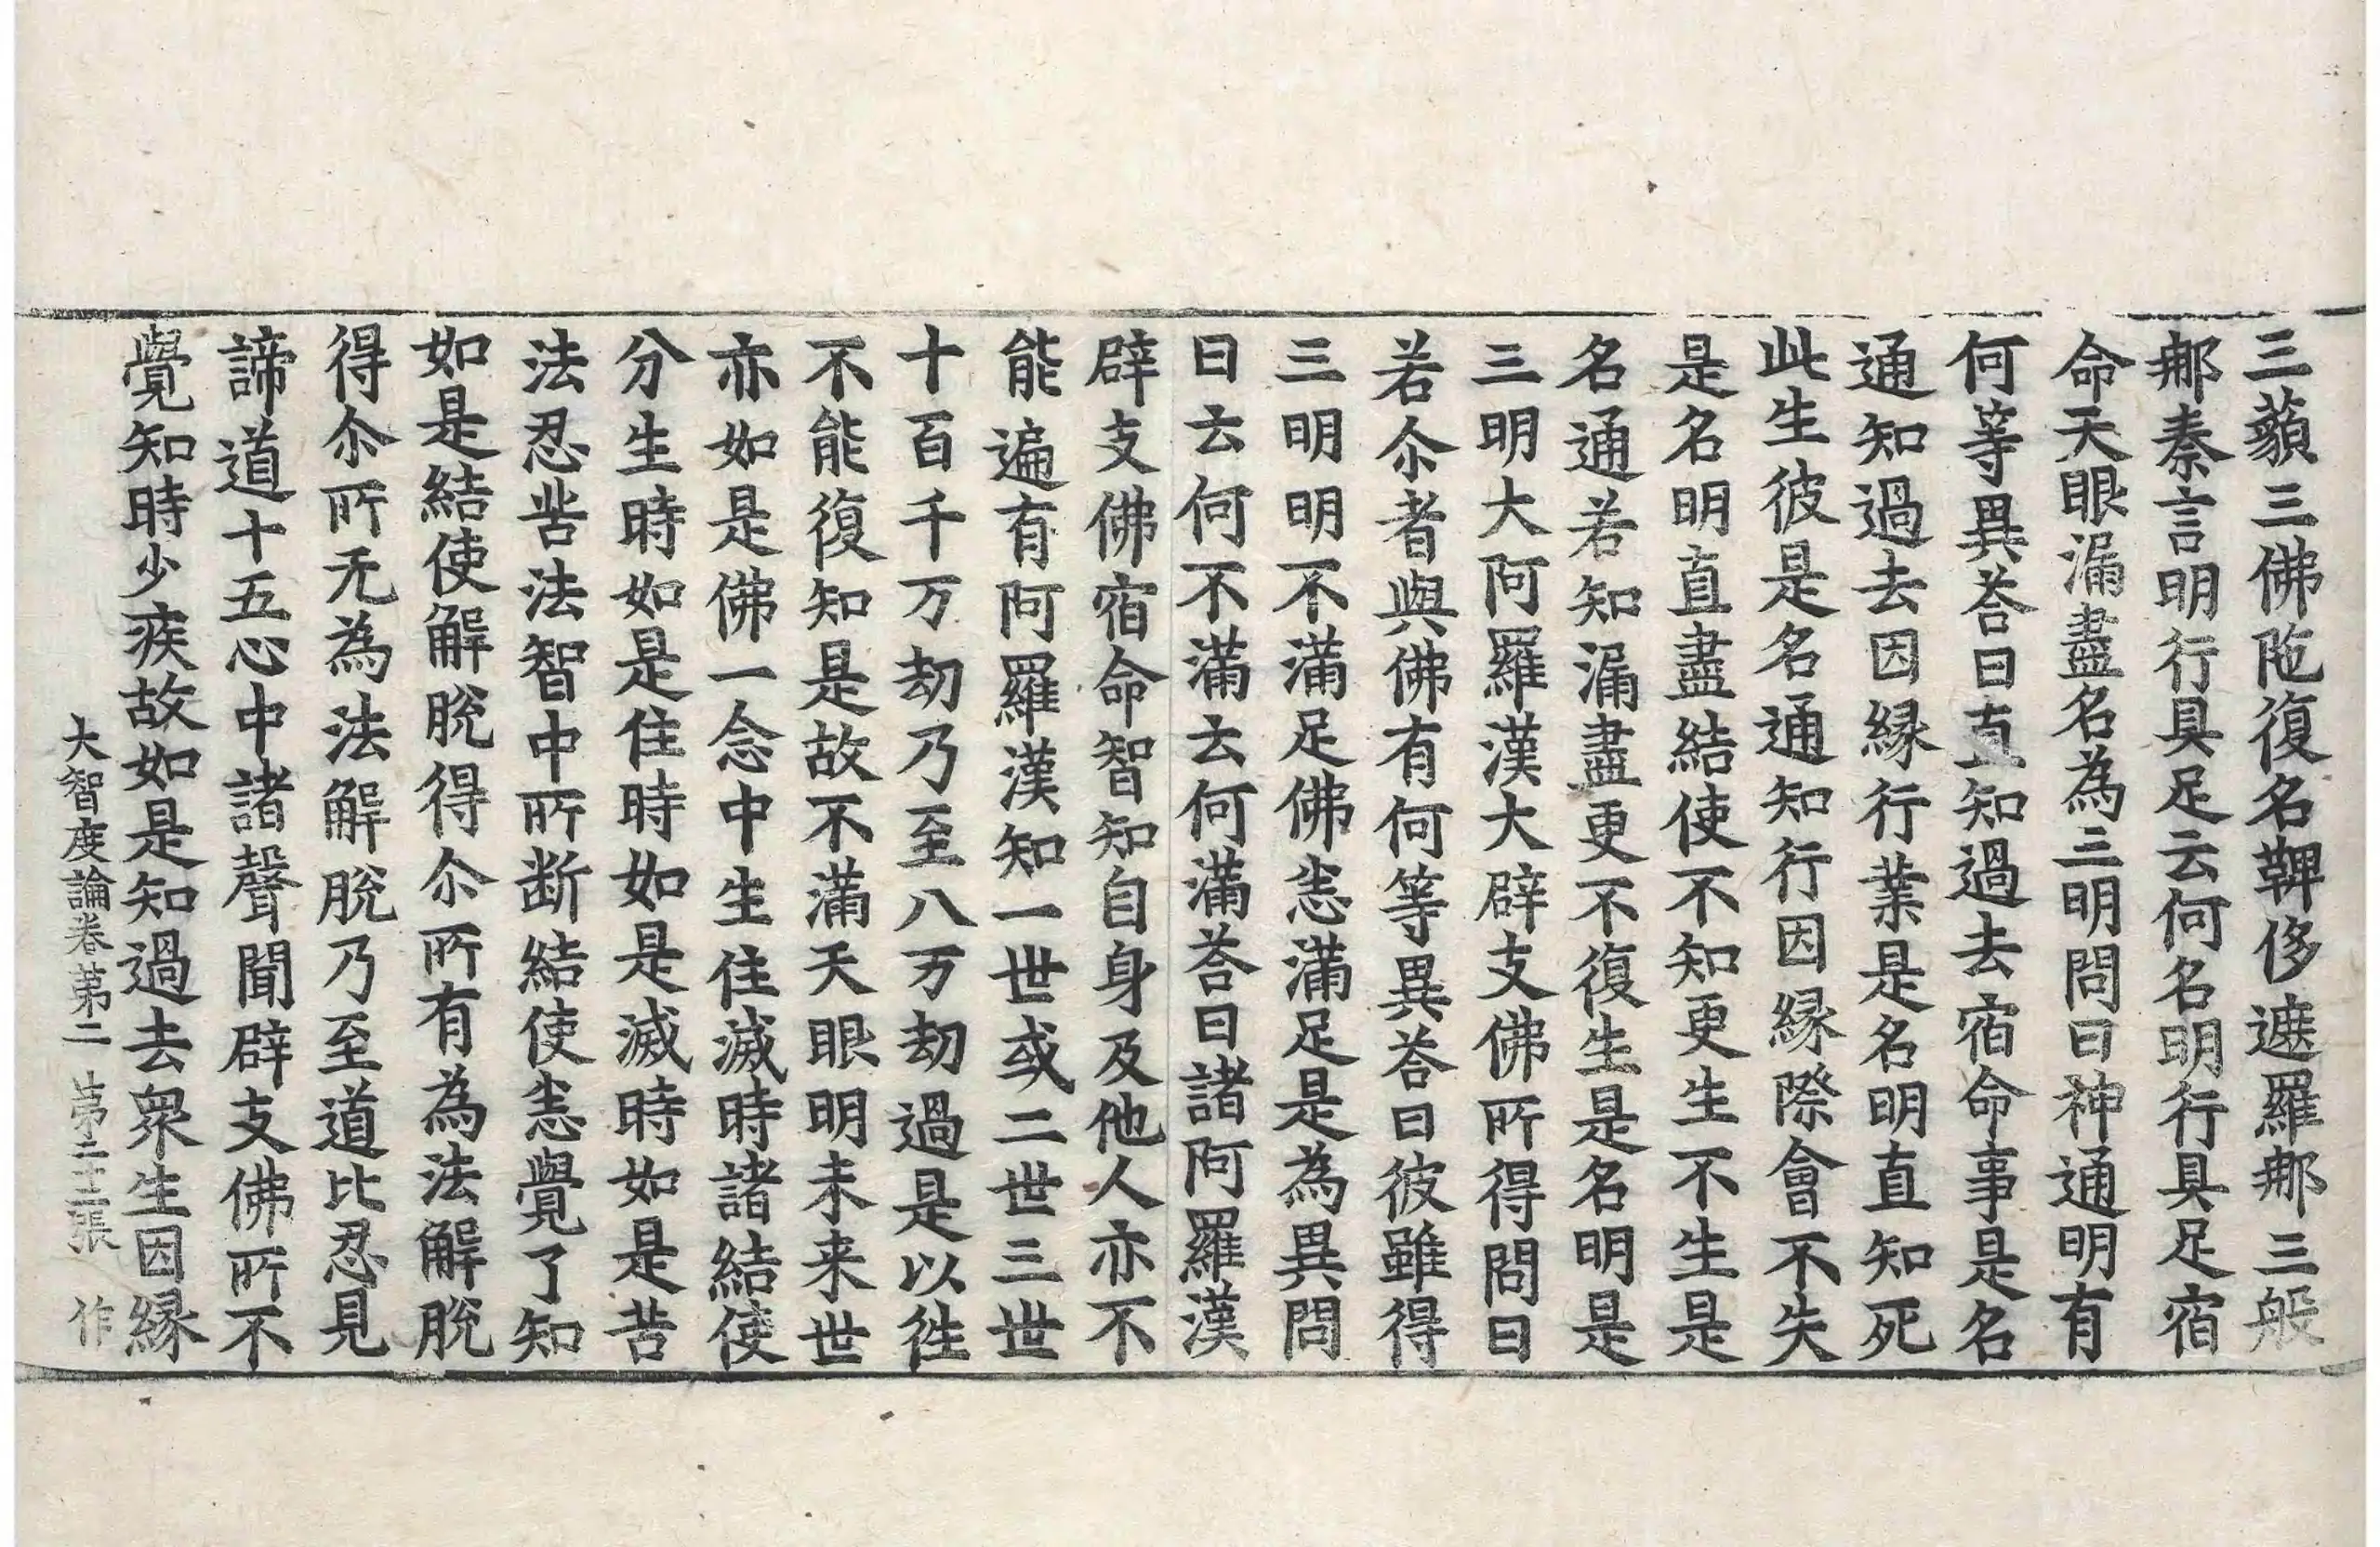 三藐三佛陁復名鞞侈遮羅那三般
那秦言明行具足云何名明行具足宿
命天眼漏盡名為三明問曰神通明有
何等異荅曰直知過去宿命事是名
通知過去因縁行業是名明直知死
此生彼是名通知行因縁際會不失
是名明直盡結使不知更生不生是
名通若知漏盡更不復生是名明是
三明大阿羅漢大辟支佛所得問曰
若尒者與佛有何等異荅曰彼雖得
三明明不滿足佛悉滿足是為異問
曰云何不滿云何滿荅曰諸阿羅漢
辟支佛宿命智知自身及他人亦不
能遍有阿羅漢知一世或二世三世
十百千万劫乃至八万劫過是以徃
不能復知是故不滿天眼明未来世
亦如是佛一念中生住滅時諸結使
分生時如是住時如是滅時如是苦
法忍苦法智中所断結使悉覺了知
如是結使解脫得尒所有為法解脫
得尒所无為法解脫乃至道比忍見
諦道十五心中諸聲聞辟支佛所不
覺知時少疾故如是知過去衆生因縁
大智度論卷苐二 苐二十三張 作